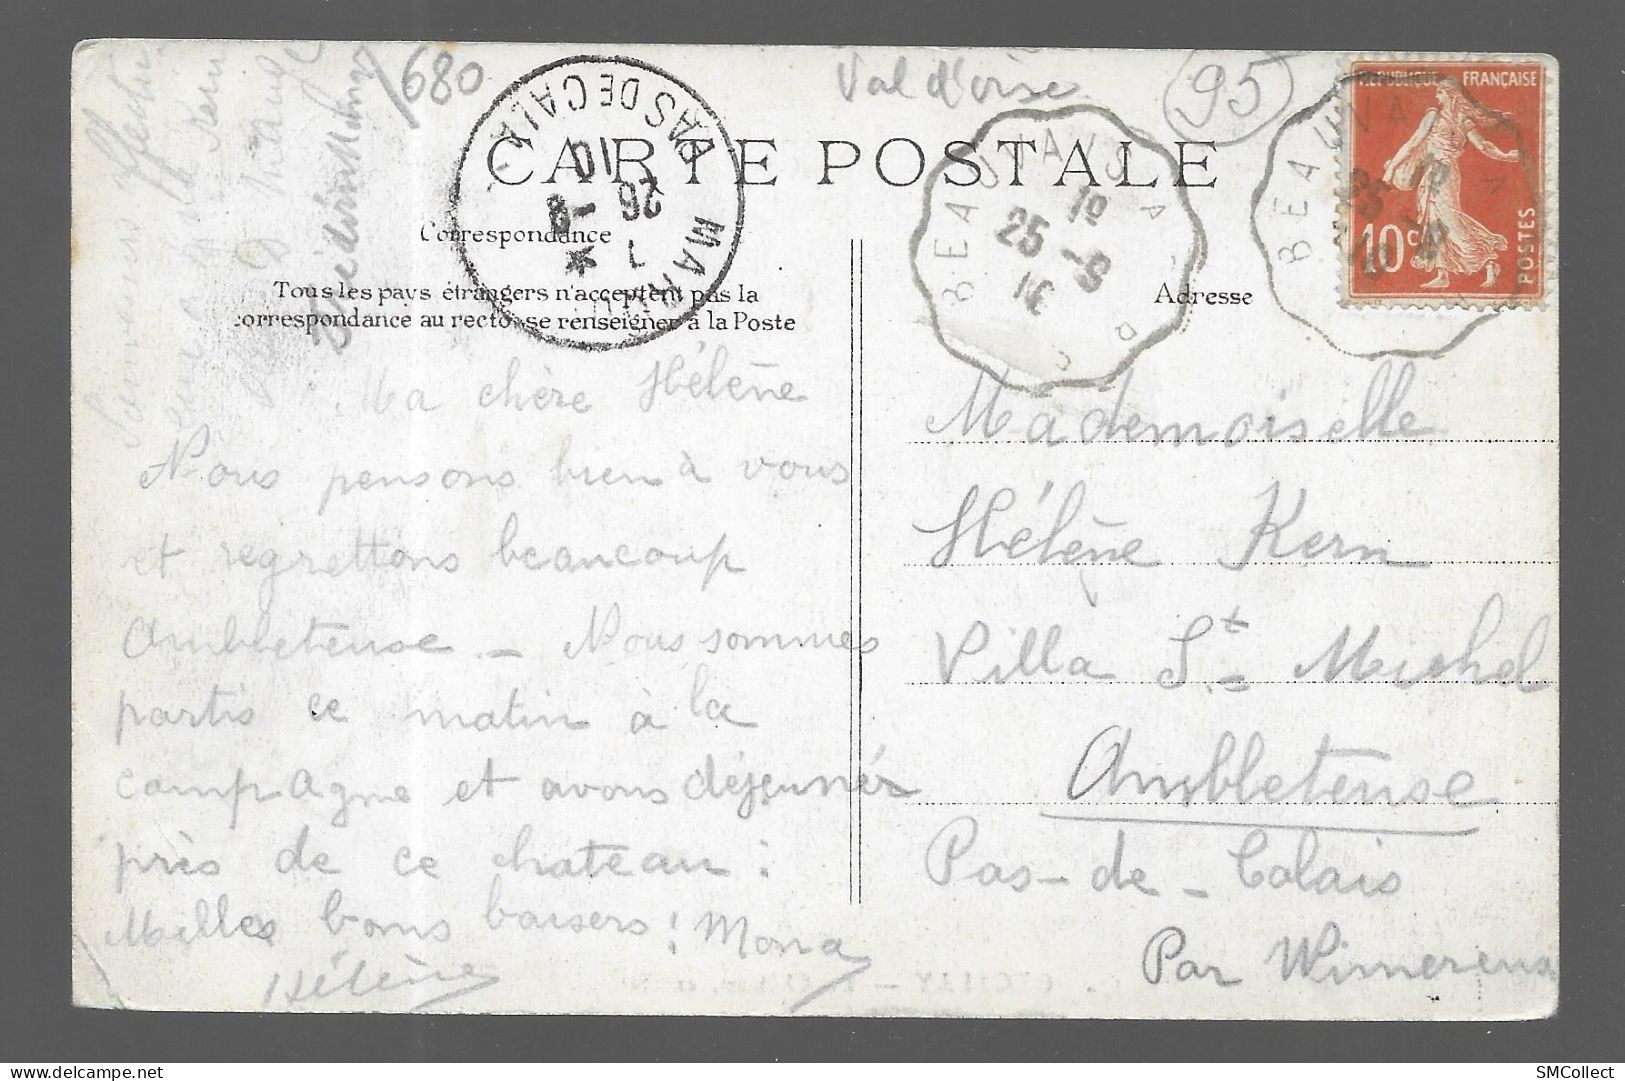 680
Val d'oise
95
CARTE POSTALE
Correspondance
Tous les pays étrangers n'acceptent pas la
correspondance au recto se renseigner à la Poste
Adresse
REPUBLIQUE FRANÇAISE
10c
POSTES
PAS DE CALAIS
26 -8
10
BEAUVAIS A
25 -8
10
BEAUVAIS
25 -8
10
Souvenirs
Ma chère Hélène
Nous pensons bien à vous
et regrettons beaucoup
Ambleteuse — Nous sommes
partis ce matin à la
campagne et avons déjeunér
près de ce chateau :
Milles bons baisers ! Mona
Hélène
Mademoiselle
Hélène Kern
Villa St. Michel
Ambleteuse
Pas-de-Calais
Par Wimereux
SMCollect